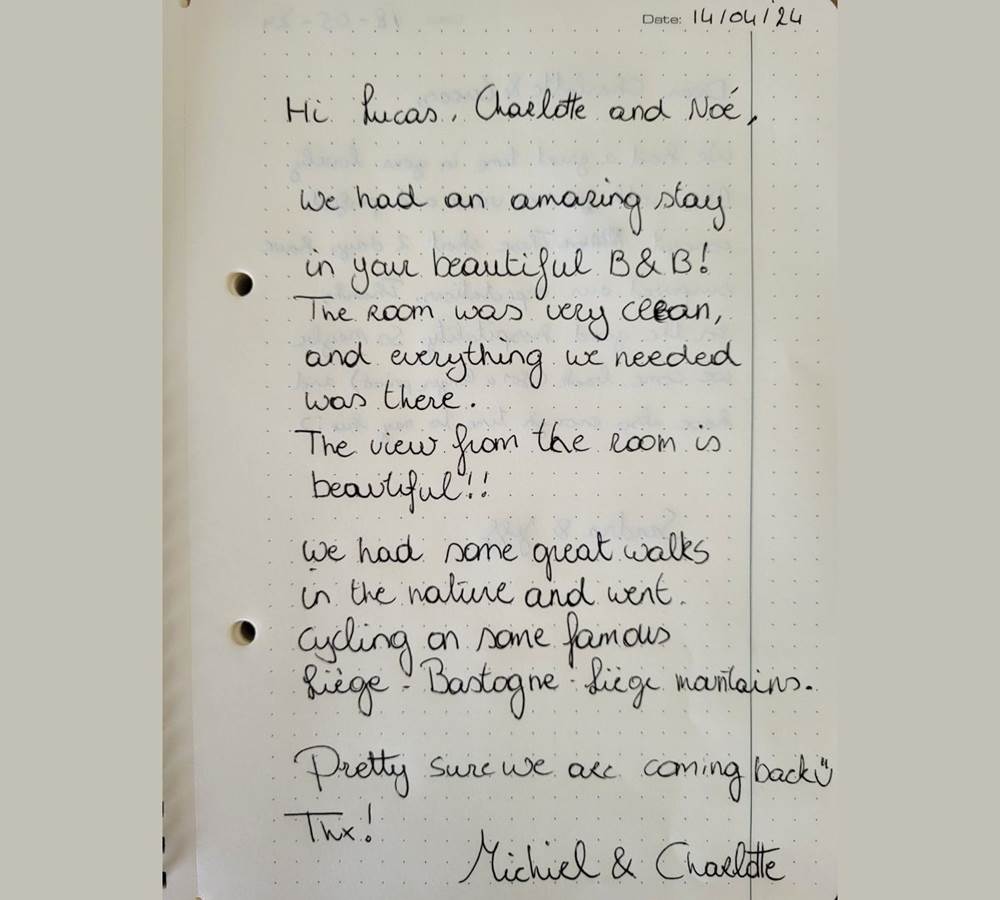 Date: 14/04/24
Hi Lucas, Charlotte and Noé,
We had an amazing stay
in your beautiful B&B!
The room was very clean,
and everything we needed
was there.
The view from the room is
beautiful!!
We had some great walks
in the nature and went
cycling on some famous
Liège - Bastogne - Liège mountains.
Pretty sure we are coming back ☺
Thx!
Michiel & Charlotte